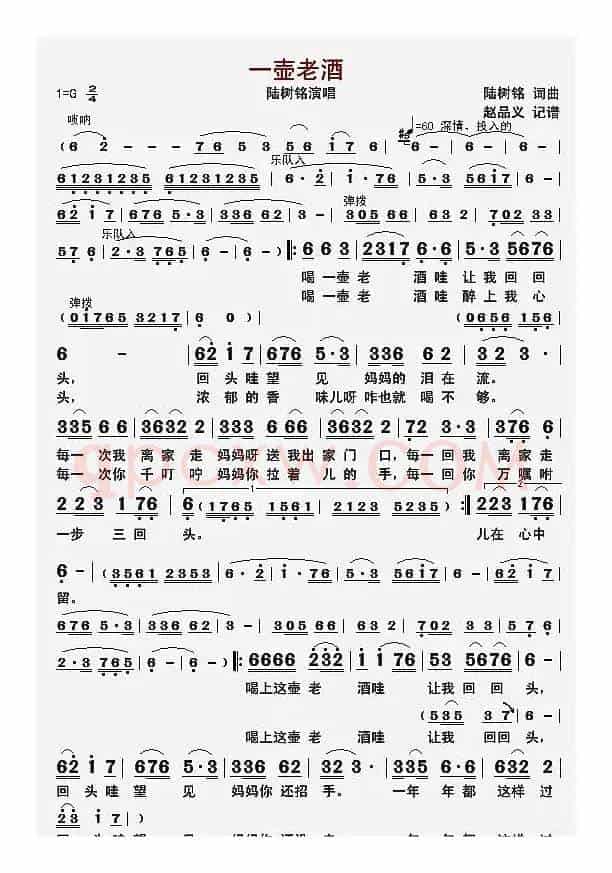 一壶老酒
1=G 2/4
陆树铭演唱
陆树铭 词曲
赵品义 记谱
唢呐
=60 深情、投入的
(6 2 - - | 7 6 5 3 5 6 1 7 6 | 6 - | 6 - | 6 - |
乐队入
61231235 | 61231235 | 6·2 | 1·76 | 53 561 7 | 6 - |
弹拨
62 1 7 | 676 5·3 | 336 62 | 3 - | 305 66 | 63 2 | 702 33 |
乐队入
57 6 | 2·3 765 | 6 - | 6 - ) |: 6 6 3 | 2317 6·6 | 5·3 5676 |
喝一壶老 酒哇让我回回
喝一壶老 酒哇醉上我心
弹拨
(01765 3217 | 6 0 )
(0656 156 )
6 - | 62 1 7 | 676 5·3 | 336 62 | 32 3· |
头, 回头哇望 见 妈妈的 泪在 流。
头, 浓郁的香 味儿呀 咋也就 喝不 够。
335 6 6 | 3632 2 | 3632 2 | 3632 1 2 | 72 3·3 | 376 6 |
每一次我 离家走 妈妈呀 送我出家门 口,每一回我 离家走
每一次你 千叮咛 妈妈你 拉着 儿的 手,每一回你 万嘱咐
2 2 3 | 1 76 | 6 (1765 1561 | 2123 5235 ) :| 223 176 |
1
2
一步 三回 头。 儿在 心中
6 - | (3561 2353 | 6·2 | 1·76 | 53 561 7 | 6 - | 62 1 7 |
留。
676 5·3 | 336 62 | 3 - | 305 66 | 63 2 | 702 33 | 57 6 |
2·3 765 | 6 - | 6 - ) |: 6666 232 | 1 1 76 | 53 5676 | 6 - |
喝上这壶 老 酒哇 让我 回 回 头,
(535 3 7 | 6 - )
喝上这壶 老 酒哇 让我 回回 头,
62 1 7 | 676 5·3 | 336 62 | 32 3· | 62 1 7 | 676 5 3 |
回 头 哇 望 见 妈妈你 还招 手。 一年 年都 这样 过
23 1 7